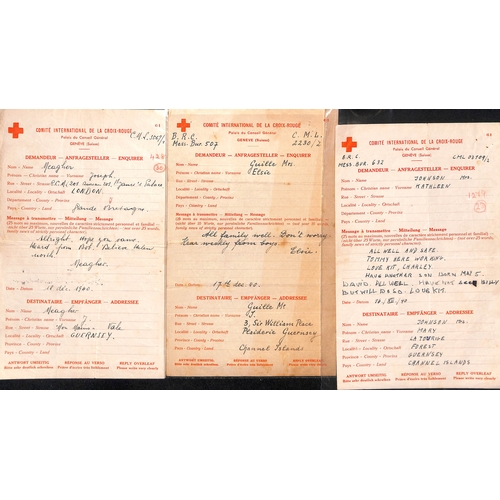 COMITÉ INTERNATIONAL DE LA CROIX-ROUGE
Palais du Conseil Général
GENÈVE (Suisse)
DEMANDEUR - ANFRAGESTELLER - ENQUIRER
Nom - Name Meagher
Prénom - Christian name - Vorname Joseph.
Rue - Street - Strasse
Localité - Locality - Ortschaft LONDON.
Département - County - Provinz
Pays - Country - Land Grande Bretagne
Message à transmettre - Mitteilung - Message
(25 mots au maximum, nouvelles de caractère strictement personnel et familial) -
(nicht über 25 Worte, nur persönliche Familiennachrichten) - (not over 25 words,
news of strictly personal character)
Allright. Hope you same.
Heard from Bot.
work.
Meagher.
Date - Datum
DESTINATAIRE - EMPFÄNGER - ADDRESSEE
Nom - Name Meagher
Prénom - Christian name - Vorname J.
Rue - Street - Strasse Vale
Localité - Locality - Ortschaft GUERNSEY.
Province - County - Provinz
Pays - Country - Land
ANTWORT UMSEITIG RÉPONSE AU VERSO REPLY OVERLEAF
Bitte sehr deutlich schreiben Prière d'écrire très lisiblement Please write very clearly
COMITÉ INTERNATIONAL DE LA CROIX-ROUGE
Palais du Conseil Général
GENÈVE (Suisse)
B. R. C.
Mess. Bur. 507
C. M. L.
2230/2
DEMANDEUR - ANFRAGESTELLER - ENQUIRER
Nom - Name Guille Mrs.
Prénom - Christian name - Vorname Elsie
Rue - Street - Strasse
Localité - Locality - Ortschaft
Département - County - Provinz
Pays - Country - Land
Message à transmettre - Mitteilung - Message
(25 mots au maximum, nouvelles de caractère strictement personnel et familial) -
(nicht über 25 Worte, nur persönliche Familiennachrichten) - (not over 25 words,
news of strictly personal character)
All family well. Don't worry.
Hear weekly from boys.
Elsie.
Date - Datum 17th Dec. 40.
DESTINATAIRE - EMPFÄNGER - ADDRESSEE
Nom - Name Guille Mr
Prénom - Christian name - Vorname J.
Rue - Street - Strasse 3, Sir William Place
Localité - Locality - Ortschaft Guernsey
Province - County - Provinz
Pays - Country - Land Channel Islands
ANTWORT UMSEITIG RÉPONSE AU VERSO REPLY OVERLEAF
Bitte sehr deutlich schreiben Prière d'écrire très lisiblement Please write very clearly
COMITÉ INTERNATIONAL DE LA CROIX-ROUGE
Palais du Conseil Général
GENÈVE (Suisse)
B.R.C.
MESS. BUR. 632
DEMANDEUR - ANFRAGESTELLER - ENQUIRER
Nom - Name JOHNSON MRS.
Prénom - Christian name - Vorname KATHLEEN
Rue - Street - Strasse
Localité - Locality - Ortschaft
Département - County - Provinz
Pays - Country - Land
Message à transmettre - Mitteilung - Message
(25 mots au maximum, nouvelles de caractère strictement personnel et familial) -
(nicht über 25 Worte, nur persönliche Familiennachrichten) - (not over 25 words,
news of strictly personal character)
ALL WELL AND SAFE
TOMMY HERE WORKING.
LOVE KIT, CHARLEY.
HAVE ANOTHER SON BORN MAY 5.
DAVID. ALL WELL. HAVE NOT SEEN
BUT WILL DO SO. LOVE
Date - Datum
DESTINATAIRE - EMPFÄNGER - ADDRESSEE
Nom - Name JOHNSON MRS.
Prénom - Christian name - Vorname MARY
Rue - Street - Strasse LA
Localité - Locality - Ortschaft FOREST
Province - County - Provinz GUERNSEY
Pays - Country - Land CHANNEL ISLANDS
ANTWORT UMSEITIG RÉPONSE AU VERSO REPLY OVERLEAF
Bitte sehr deutlich schreiben Prière d'écrire très lisiblement Please write very clearly